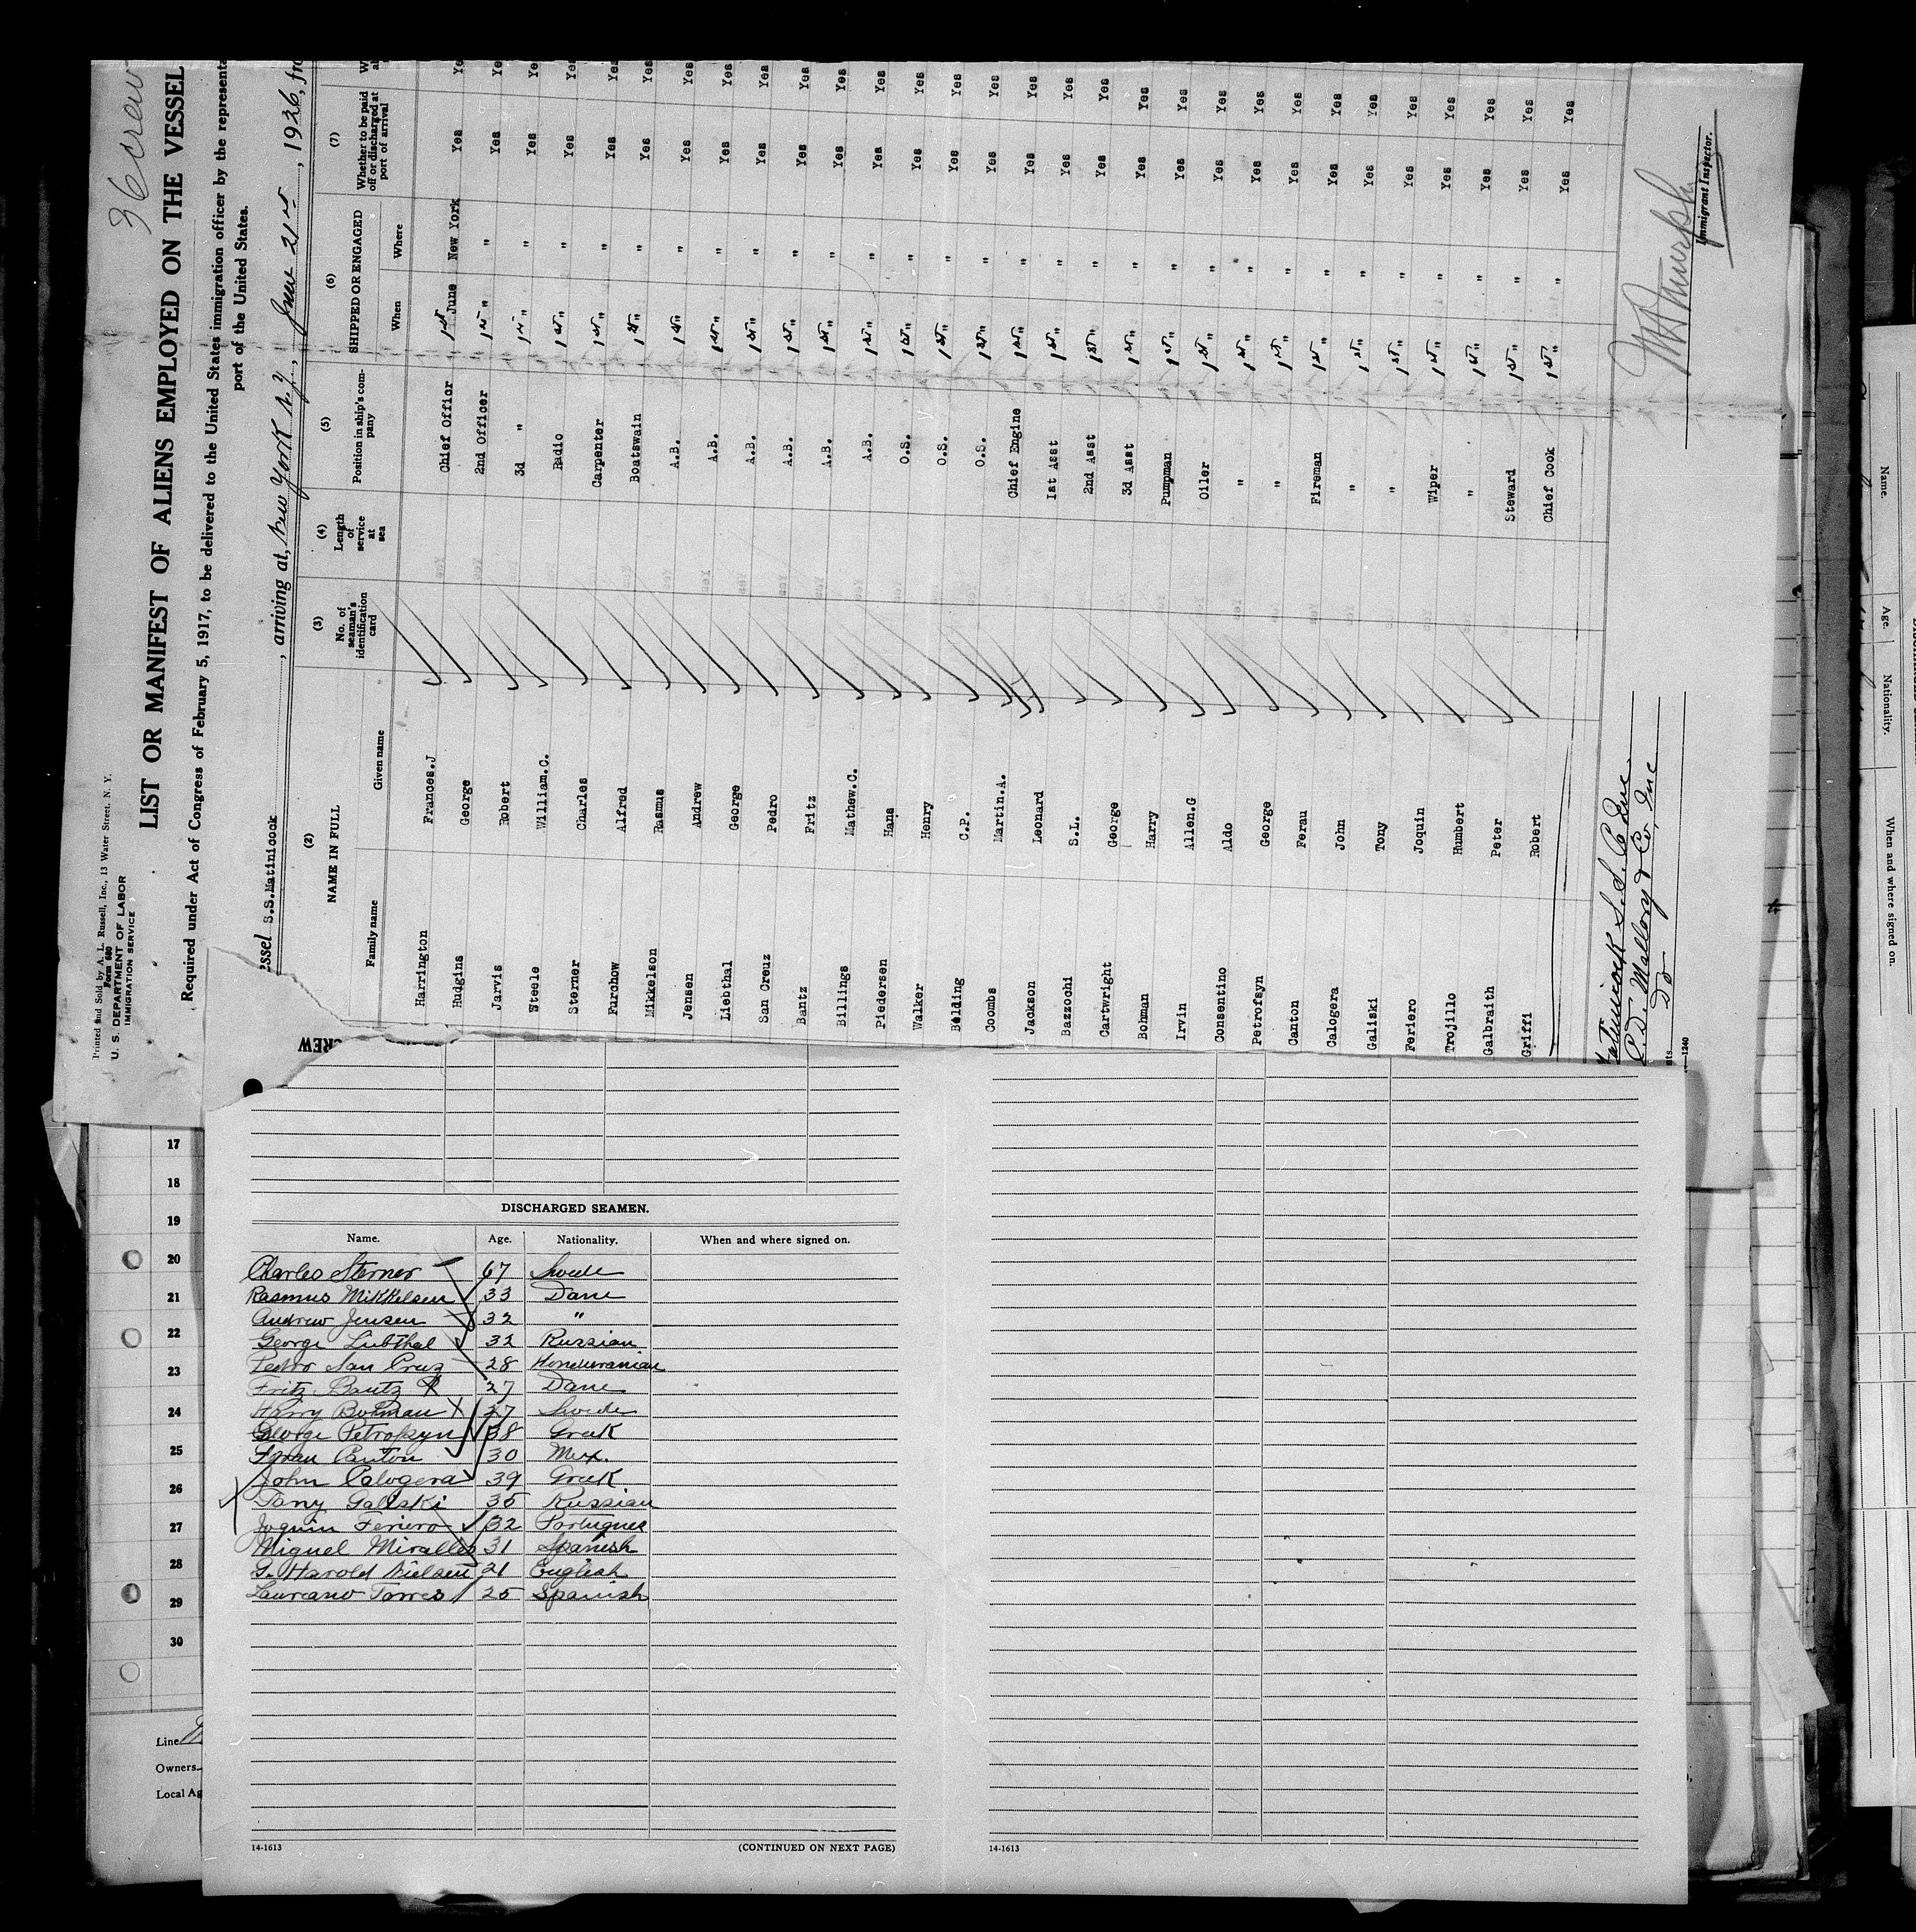 36 crew
Printed and Sold by A. L. Russell, Inc., 13 Water Street. N. Y.
Form 680
U. S. DEPARTMENT OF LABOR
IMMIGRATION SERVICE
LIST OR MANIFEST OF ALIENS EMPLOYED ON THE VESSEL
Required under Act of Congress of February 5, 1917, to be delivered to the United States immigration officer by the representa
port of the United States.
essel S.S.Matinicock , arriving at, New York N.Y., June 21st, 1926, fro
(2) (3) (4) (5) (6) (7)
NAME IN FULL No. of seaman's identification card Length of service at sea Position in ship's company SHIPPED OR ENGAGED Whether to be paid off or discharged at port of arrival
Family name Given name When Where
Harrington Frances.J Chief Officr 1st June New York Yes Yes
Hudgins George 2nd Officer 1st " " Yes Yes
Jarvis Robert 3d " 1st " " Yes Yes
Steele William.C. Radio 1st " " Yes Yes
Sterner Charles Carpenter 1st " " Yes Yes
Furchow Alfred Boatswain 1st " " Yes Yes
Mikkelson Rasmus A.B. 1st " " Yes Yes
Jensen Andrew A.B. 1st " " Yes Yes
Liebthal George A.B. 1st " " Yes Yes
San Creuz Pedro A.B. 1st " " Yes Yes
Bantz Fritz A.B. 1st " " Yes Yes
Billings Mathew.C. A.B. 1st " " Yes Yes
Piedersen Hans O.S. 1st " " Yes Yes
Walker Henry O.S. 1st " " Yes Yes
Belding C.P. O.S. 1st " " Yes Yes
Coombs Martin.A. Chief Engine 1st " " Yes Yes
Jackson Leonard 1st Asst 1st " " Yes Yes
Bazzochi S.L. 2nd Asst 1st " " Yes Yes
Cartwright George 3d Asst 1st " " Yes Yes
Bohman Harry Pumpman 1st " " Yes Yes
Irvin Allen.G Oiler 1st " " Yes Yes
Consentino Aldo " 1st " " Yes Yes
Petrofsyn George " 1st " " Yes Yes
Canton Ferau Fireman 1st " " Yes Yes
Calogera John " 1st " " Yes Yes
Galiski Tony " 1st " " Yes Yes
Feriero Joquin Wiper 1st " " Yes Yes
Trojillo Humbert " 1st " " Yes Yes
Galbraith Peter Steward 1st " " Yes Yes
Griffi Robert Chief Cook 1st " " Yes Yes
Matinicock S.S. Co Inc.
C.D. Mallory & Co, Inc
Do
nts
—1240
Immigrant Inspector.
CREW
17
18
19
20
21
22
23
24
25
26
27
28
29
30
Line
Owners
Local Ag
DISCHARGED SEAMEN.
Name. Age. Nationality. When and where signed on.
Charles Sterner 67 Swede
Rasmus Mikkelsen 33 Dane
Andrew Jensen 32 "
George Liebthal 32 Russian
Pedro San Cruz 28 Honduranian
Fritz Bautz 27 Dane
Harry Bohman 27 Swede
George Petropsyn 38 Greek
Feran Canton 30 Mex.
John Calogera 39 Greek
Tony Galiski 35 Russian
Joquin Feriero 32 Portugues
Miguel Miralles 31 Spanish
G. Harold Nielsen 21 English
Laureano Torres 25 Spanish
14-1613 (CONTINUED ON NEXT PAGE)
14-1613
Name. Age. Nationality. When and where signed on.